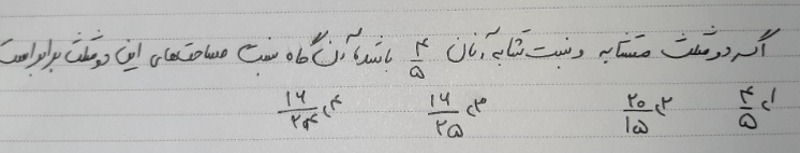 اگر دو مثلث متشابه و نسبت تشابه آنان ۴/۵ باشد آن گاه نسبت مساحت‌های این دو مثلث برابر است
۱) ۴/۵ ۲) ۲۰/۱۵ ۳) ۱۶/۲۵ ۴) ۱۶/۲۴